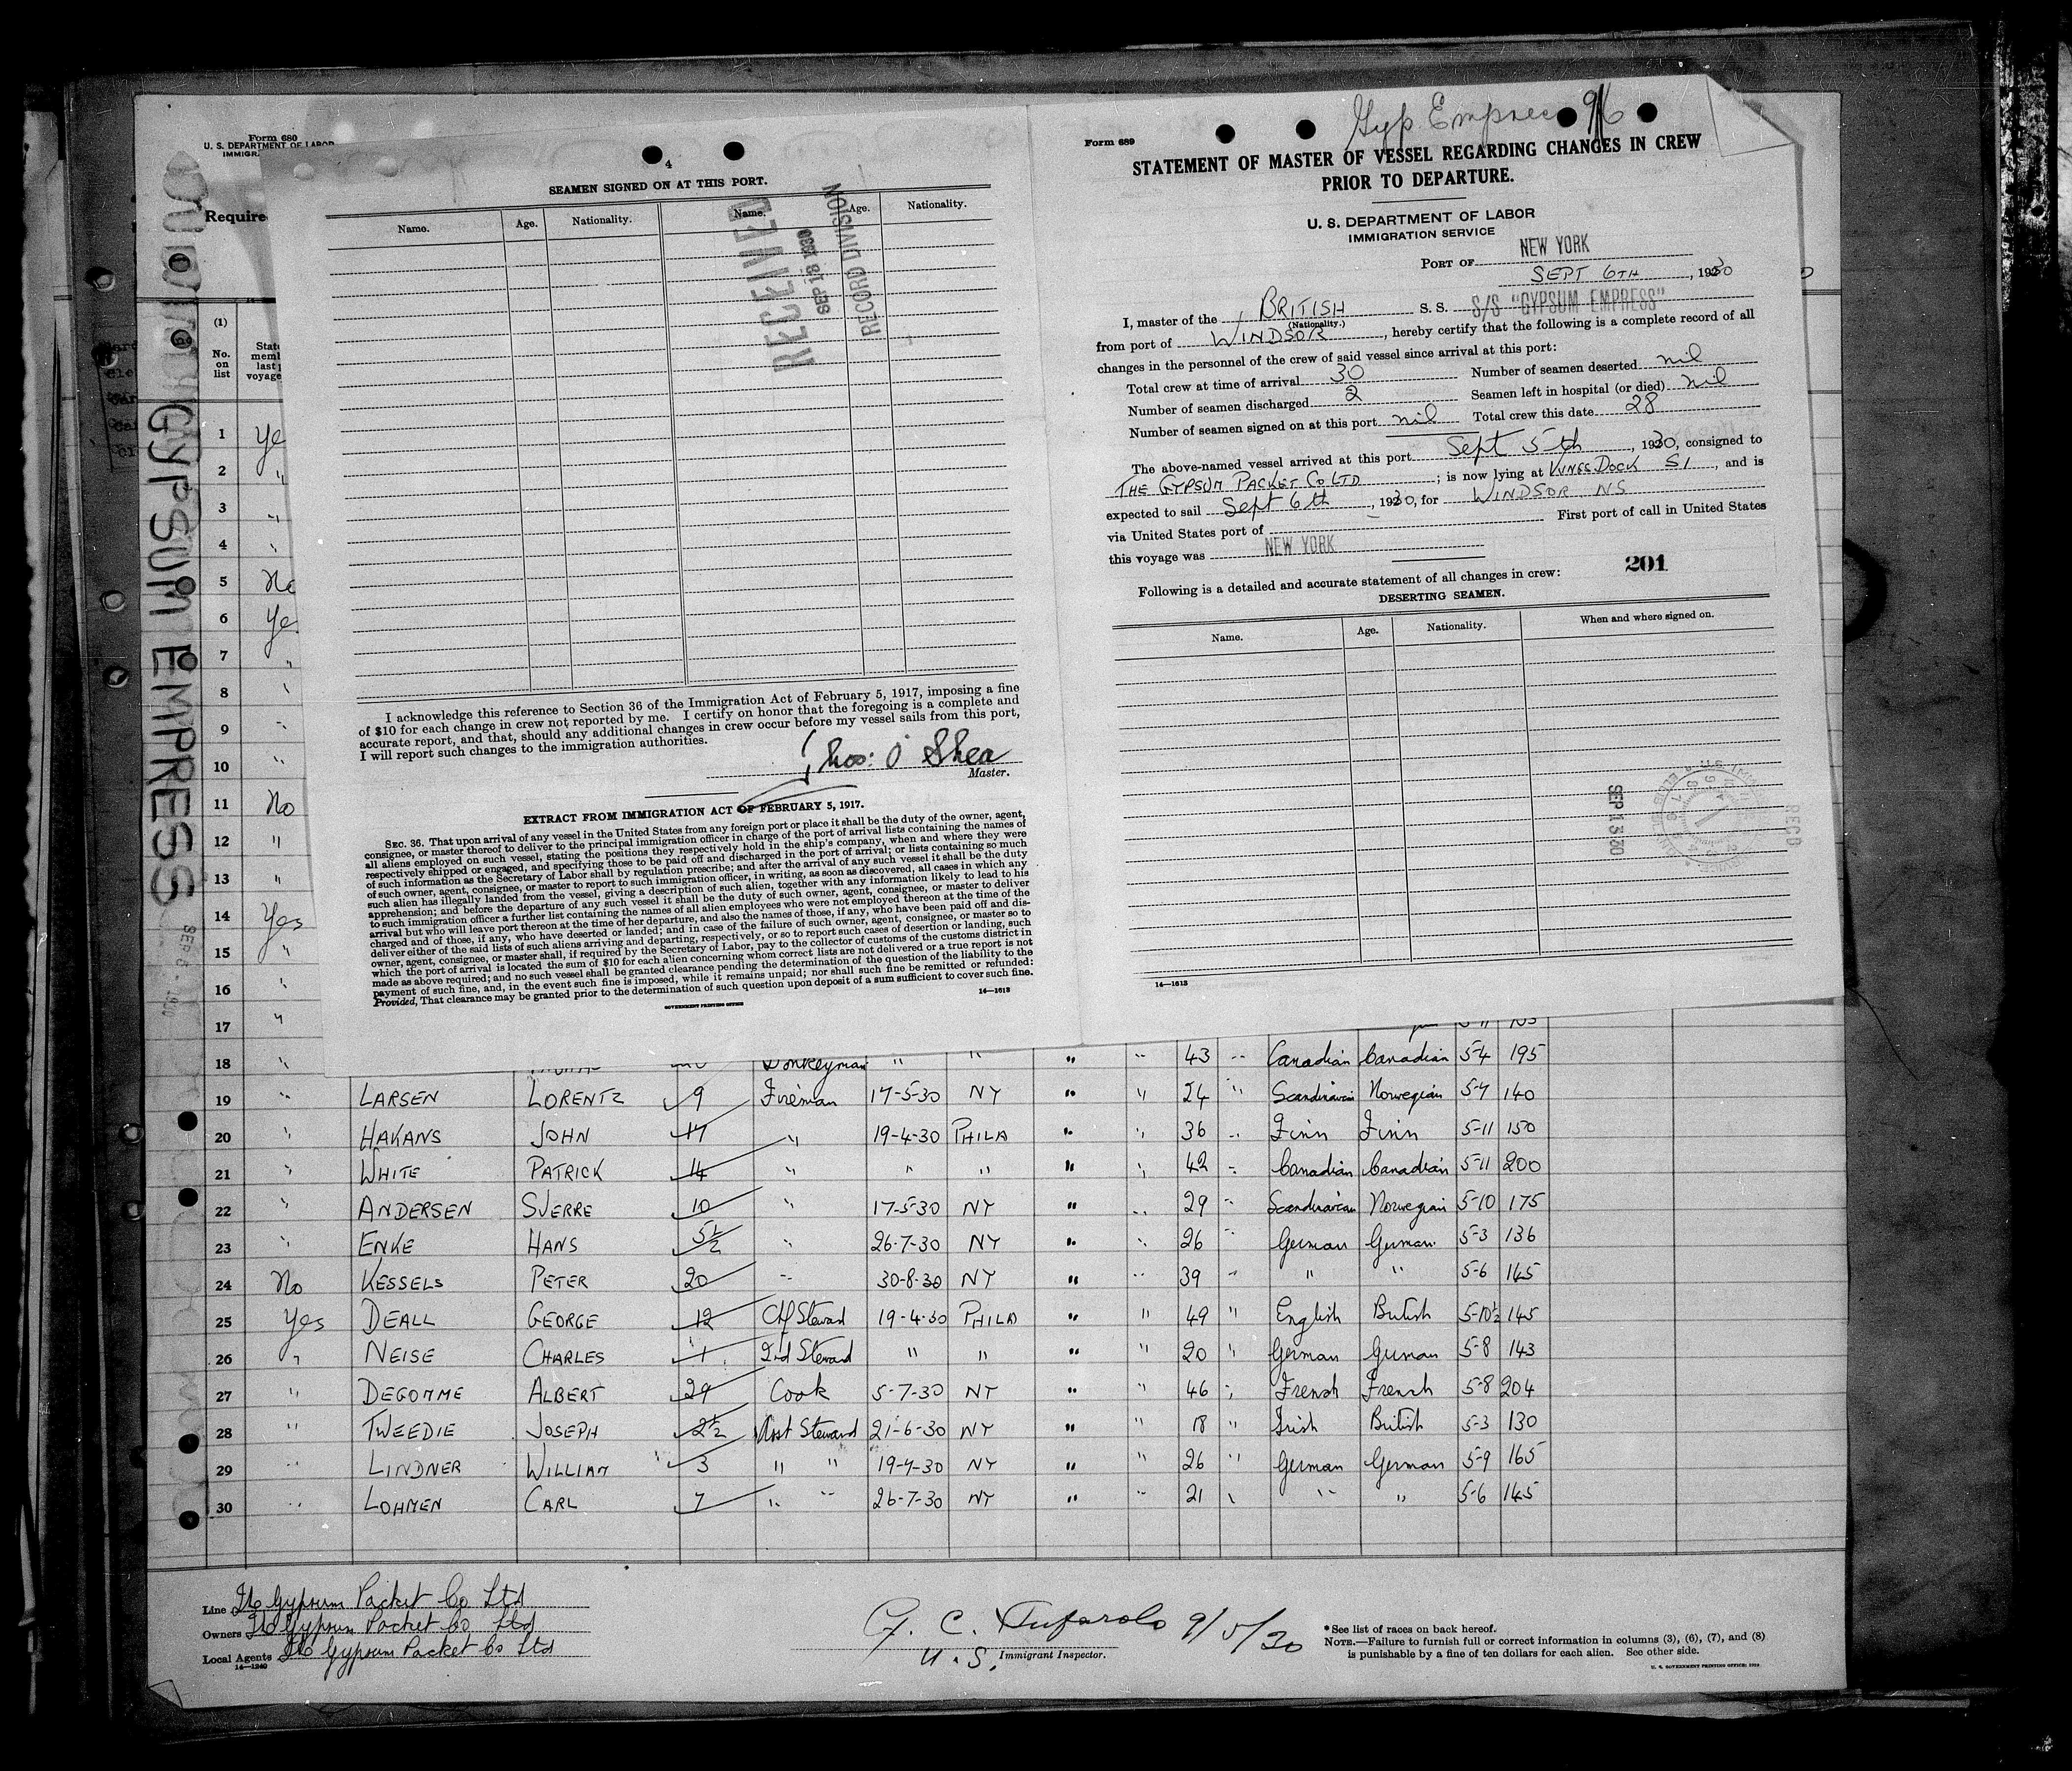 Form 680
U. S. DEPARTMENT OF LABOR
IMMIGR
Require
(1)
No. on list
State
memb
last
voyage
GYPSUM EMPRESS
SEP 6 - 1930
4
SEAMEN SIGNED ON AT THIS PORT.
Name. Age. Nationality. Name. Age. Nationality.
RECEIVED
SEP 18 1930
RECORD DIVISION
I acknowledge this reference to Section 36 of the Immigration Act of February 5, 1917, imposing a fine
of $10 for each change in crew not reported by me. I certify on honor that the foregoing is a complete and
accurate report, and that, should any additional changes in crew occur before my vessel sails from this port,
I will report such changes to the immigration authorities.
Thos: O'Shea
Master.
EXTRACT FROM IMMIGRATION ACT OF FEBRUARY 5, 1917.
SEC. 36. That upon arrival of any vessel in the United States from any foreign port or place it shall be the duty of the owner, agent,
consignee, or master thereof to deliver to the principal immigration officer in charge of the port of arrival lists containing the names of
all aliens employed on such vessel, stating the positions they respectively hold in the ship's company, when and where they were
respectively shipped or engaged, and specifying those to be paid off and discharged in the port of arrival; or lists containing so much
of such information as the Secretary of Labor shall by regulation prescribe; and after the arrival of any such vessel it shall be the duty
of such owner, agent, consignee, or master to report to such immigration officer, in writing, as soon as discovered, all cases in which any
such alien has illegally landed from the vessel, giving a description of such alien, together with any information likely to lead to his
apprehension; and before the departure of any such vessel it shall be the duty of such owner, agent, consignee, or master to deliver
to such immigration officer a further list containing the names of all alien employees who were not employed thereon at the time of the
arrival but who will leave port thereon at the time of her departure, and also the names of those, if any, who have been paid off and dis-
charged and of those, if any, who have deserted or landed; and in case of the failure of such owner, agent, consignee, or master so to
deliver either of the said lists of such aliens arriving and departing, respectively, or so to report such cases of desertion or landing, such
owner, agent, consignee, or master shall, if required by the Secretary of Labor, pay to the collector of customs of the customs district in
which the port of arrival is located the sum of $10 for each alien concerning whom correct lists are not delivered or a true report is not
made as above required; and no such vessel shall be granted clearance pending the determination of the question of the liability to the
payment of such fine, and, in the event such fine is imposed, while it remains unpaid; nor shall such fine be remitted or refunded:
Provided, That clearance may be granted prior to the determination of such question upon deposit of a sum sufficient to cover such fine.
GOVERNMENT PRINTING OFFICE
14—1613
Gyp Empress 9/6
Form 689
STATEMENT OF MASTER OF VESSEL REGARDING CHANGES IN CREW
PRIOR TO DEPARTURE.
U. S. DEPARTMENT OF LABOR
IMMIGRATION SERVICE
PORT OF NEW YORK
SEPT 6TH, 1930
I, master of the BRITISH S. S. S/S "GYPSUM EMPRESS"
(Nationality.)
from port of WINDSOR, hereby certify that the following is a complete record of all
changes in the personnel of the crew of said vessel since arrival at this port:
Total crew at time of arrival 30 Number of seamen deserted nil
Number of seamen discharged 2 Seamen left in hospital (or died) nil
Number of seamen signed on at this port nil Total crew this date 28
The above-named vessel arrived at this port Sept 5th, 1930, consigned to
THE GYPSUM PACKET CO LTD; is now lying at KINGS DOCK SI, and is
expected to sail Sept 6th, 1930, for WINDSOR NS
via United States port of First port of call in United States
this voyage was NEW YORK
201
Following is a detailed and accurate statement of all changes in crew:
DESERTING SEAMEN.
Name. Age. Nationality. When and where signed on.
SEP 13 30
RECD
14—1613
1 Ye
2 "
3 "
4 "
5 No
6 Ye
7 "
8 "
9 "
10 "
11 No
12 "
13 "
14 Yes
15 "
16 "
17 "
18 " Donkeyman " " " " 43 " Canadian Canadian 5-4 195
19 " LARSEN LORENTZ 9 Fireman 17-5-30 NY " " 24 " Scandinavian Norwegian 5-7 140
20 " HAKANS JOHN 17 " 19-4-30 PHILA " " 36 " Finn Finn 5-11 150
21 " WHITE PATRICK 14 " " " " " 42 " Canadian Canadian 5-11 200
22 " ANDERSEN SJERRE 10 " 17-5-30 NY " " 29 " Scandinavian Norwegian 5-10 175
23 " ENKE HANS 5½ " 26-7-30 NY " " 26 " German German 5-3 136
24 No KESSELS PETER 20 " 30-8-30 NY " " 39 " " " 5-6 145
25 Yes DEALL GEORGE 12 Chf Steward 19-4-30 PHILA " " 49 " English British 5-10½ 145
26 " NEISE CHARLES 1 2nd Steward " " " " 20 " German German 5-8 143
27 " DEGOMME ALBERT 29 Cook 5-7-30 NY " " 46 " French French 5-8 204
28 " TWEEDIE JOSEPH 2½ Asst Steward 21-6-30 NY " " 18 " Irish British 5-3 130
29 " LINDNER WILLIAM 3 " " 19-7-30 NY " " 26 " German German 5-9 165
30 " LOHMEN CARL 7 " " 26-7-30 NY " " 21 " " " 5-6 145
Line The Gypsum Packet Co Ltd
Owners The Gypsum Packet Co Ltd
Local Agents The Gypsum Packet Co Ltd
14—1240
G. C. Tufarolo 9/5/30
U. S. Immigrant Inspector.
* See list of races on back hereof.
NOTE.—Failure to furnish full or correct information in columns (3), (6), (7), and (8)
is punishable by a fine of ten dollars for each alien. See other side.
U. S. GOVERNMENT PRINTING OFFICE: